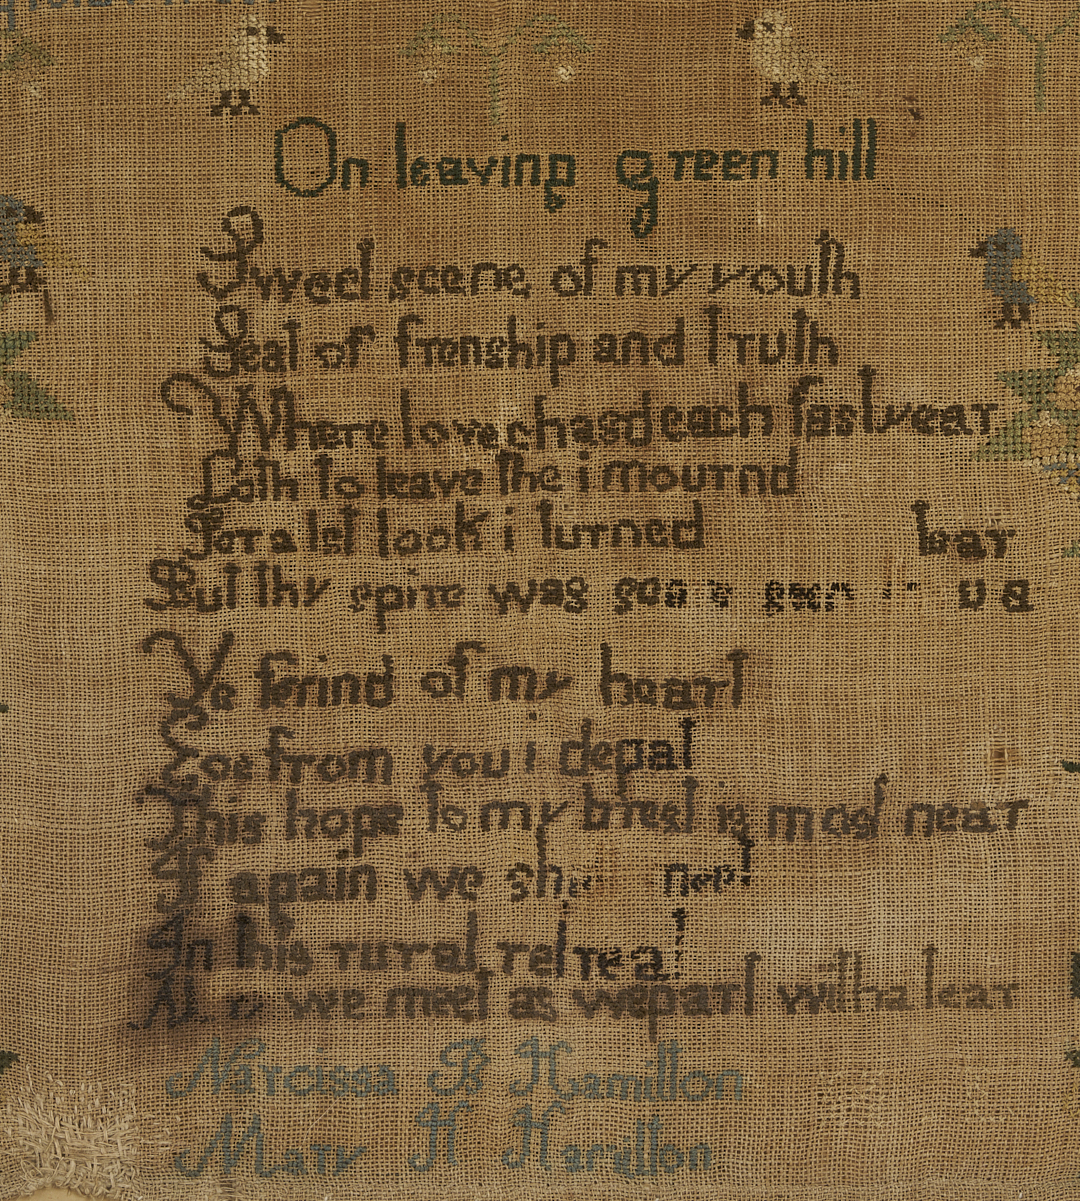 On leaving green hill
Sweet scene of my youth
Seat of frenship and truth
Where love chasd each fast year
Loth to leave the i mournd
For a lst look i turned
tear
But thy spire was
Ye ferind of my heart
Eoe from you i depat
This hope to my brest is most near
If again we
In this rural retreat
we meet as we part with a tear
Narcissa B Hamilton
Mary H Hamilton